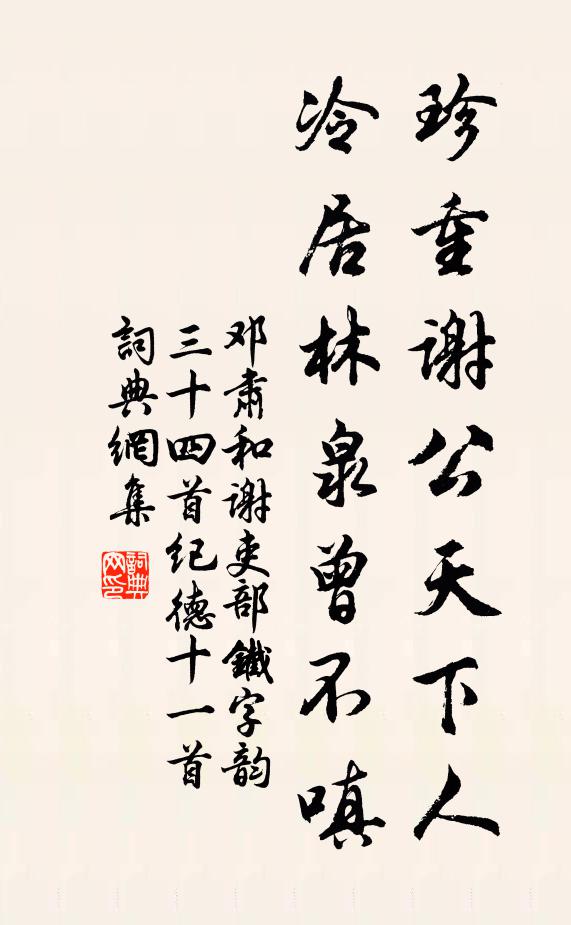 珍重謝公天下人
冷居林泉曾不嗔
邓肅和謝吏部鐵字韵
三十四首纪德十一首
詞典網集
詞典
网印